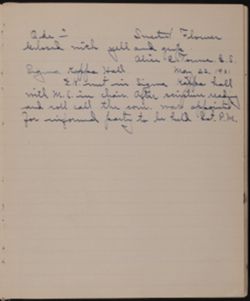 Ode - Sister Flower
Closed with yell and grip
Alice L. Towne C.S.
Sigma Kappa Hall May 22, 1921
S.K. met in Sigma Kappa hall
with M.C. in chair. After scripture reading
and roll call the com. was appointed
for informal party to be held Sat. P.M.